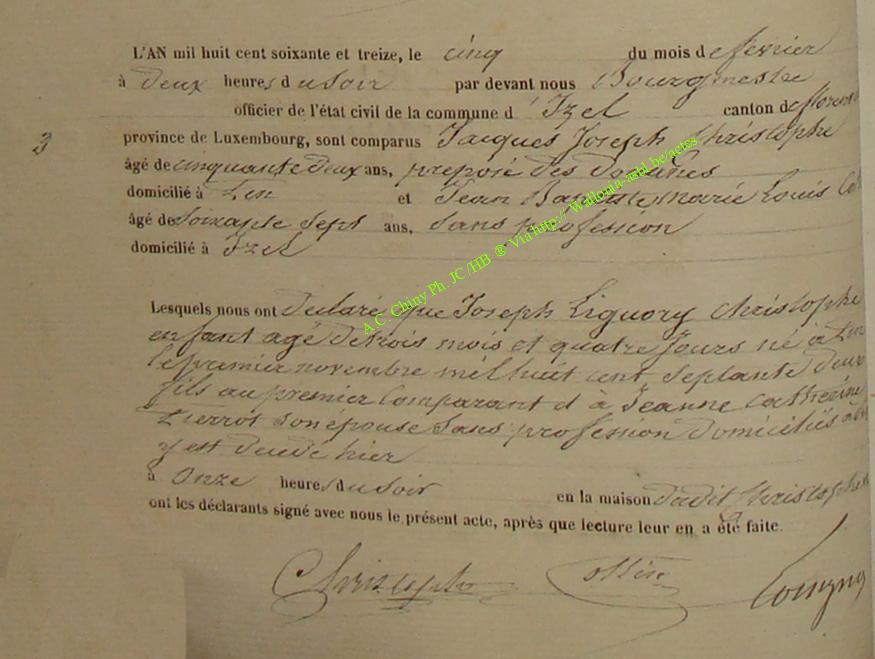 L'AN mil huit cent soixante et treize, le cinq du mois de fevrier
à deux heures du soir par devant nous Bourgmestre
officier de l'état civil de la commune d'Izel canton de
3 province de Luxembourg, sont comparus Jacques Joseph Christophe
âgé de cinquante deux ans, preposé des douanes
domicilié à et Jean Baptiste Marie Louis
âgé de soixante sept ans, sans profession
domicilié à Izel
A.C. Chiny Ph. JC /HB @ Via http:// Wallonia-asbl.be/actes
Lesquels nous ont declaré que Joseph Liguory Christophe
enfant agé de trois mois et quatre jours né à
le premier novembre mil huit cent septante deux
fils au premier Comparant et à Jeanne Catherine
Pierrot son épouse sans profession domiciliés à
y est hier
à onze heures du soir en la maison dudit Christophe
ont les déclarants signé avec nous le présent acte, après que lecture leur en a été faite.
Christophe